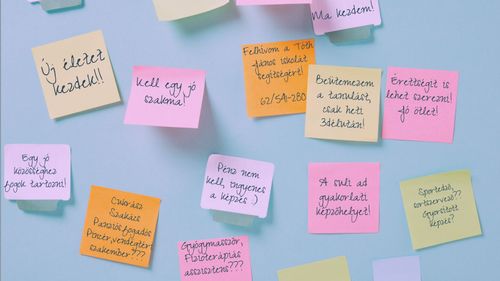 Ma kezdem!
Új életet
kezdek!!
Kell egy jó
szakma!
Felhívom a Tóth
János iskolát
segítségért!
62/541-280
Beütemezem
a tanulást,
csak heti
3délután!
Érettségit is
lehet szerezni!
Jó ötlet!
Egy jó
közösséghez
fogok tartozni!
Pénz nem
kell, ingyenes
a képzés :)
A suli ad
gyakorlati
képzőhelyet!
Sportedző,
sportszervező??
Gyorsított
képzés?
Cukrász
Szakács
Panziós,fogadós
Pincér,vendégtéri
szakember???
Gyógymasszőr,
Fizioterápiás
asszisztens???